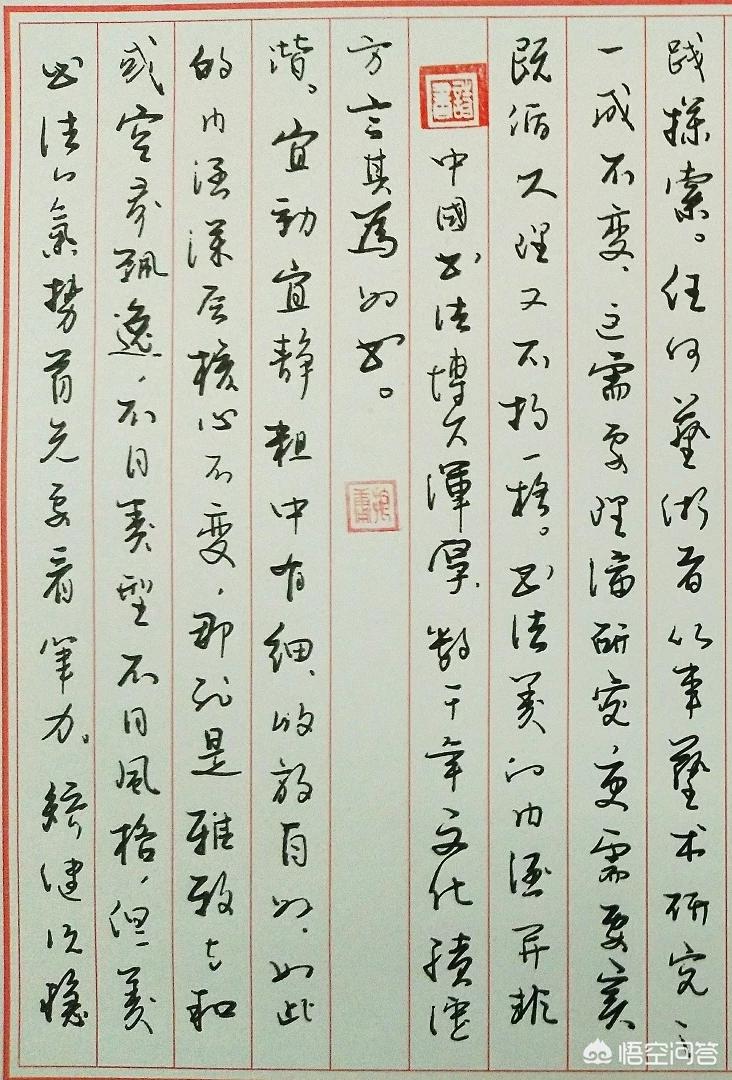 践探索。任何藝術首以事藝术研究之
一成不变、这需要理论研究更需要实
既循人理又不拘一格。书法美的内涵并非
中國书法博大渾厚、数千年文化積淀
方言其為的书。
谐。宜動宜静粗中有细、收放自如,如此
的内涵深层核心不变,那就是雅致与和
或空灵飘逸,不同类型不同风格,但美
书法的氣势首先要看笔力。矫健沉稳
悟空问答